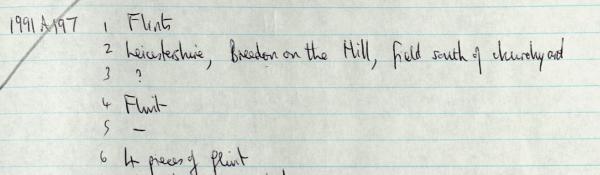 1991 A197 1 Flints
2 Leicestershire, Breedon on the Hill, field south of churchyard
3 ?
4 Flint
5 —
6 4 pieces of flint